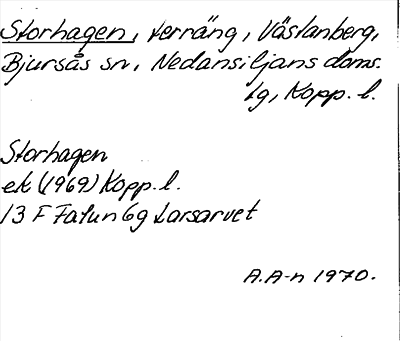 Storhagen, ternäng, Västanberg,
Bjursås sn, Nedansiljans doms.
tg, Kopp. l.
Storhagen
ek (1969) Kopp. l.
13 F Falun 6g Larsarvet
A.A-n 1970.